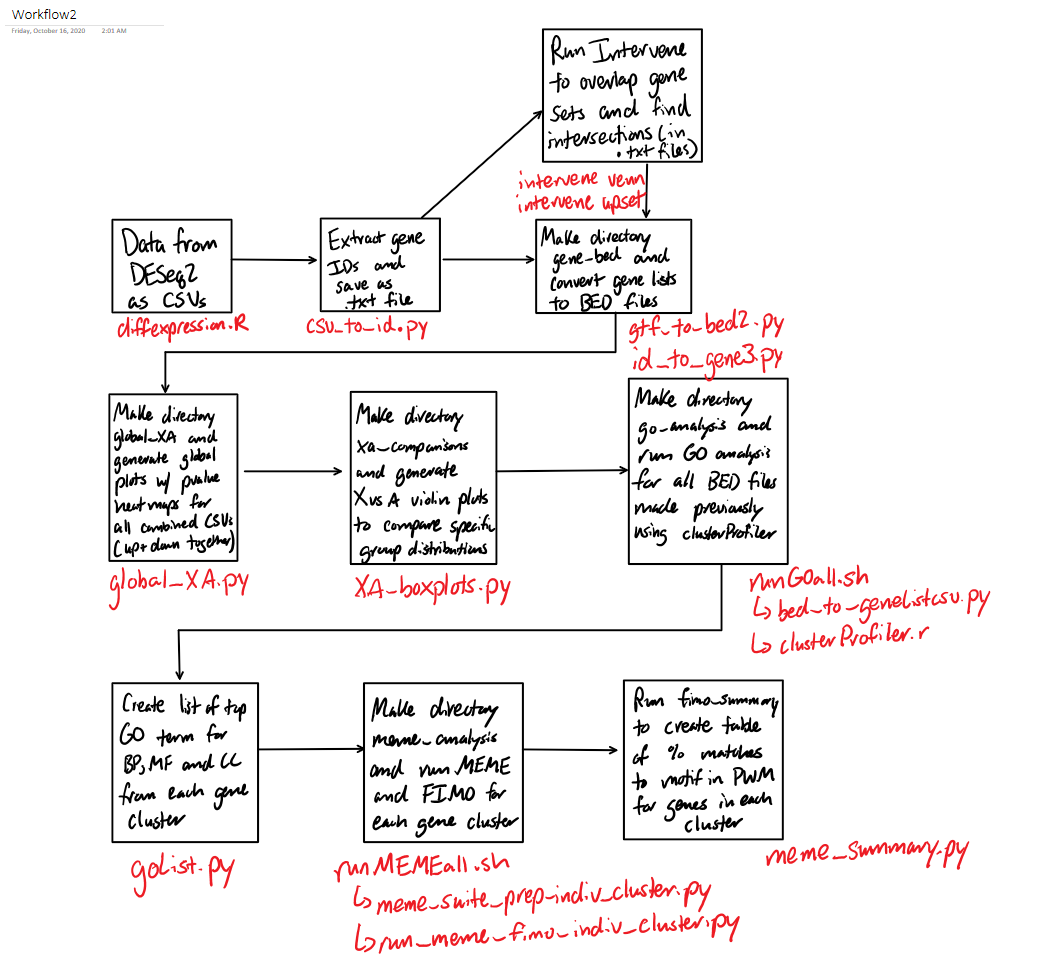 Workflow2
Friday, October 16, 2020 2:01 AM
Run Intervene
to overlap gene
sets and find
intersections (in
.txt files)
intervene venn
intervene upset
Data from
DESeq2
as CSVs
diffexpression.R
Extract gene
IDs and
save as
.txt file
csv_to_id.py
Make directory
gene-bed and
convert gene lists
to BED files
gtf_to_bed2.py
id_to_gene3.py
Make directory
global_XA and
generate global
plots w/ pvalue
heatmaps for
all combined CSVs
(up+down together)
global_XA.py
Make directory
xa-comparisons
and generate
X vs A violin plots
to compare specific
group distributions
XA_boxplots.py
Make directory
go-analysis and
run GO analysis
for all BED files
made previously
using clusterProfiler
runGOall.sh
↳ bed_to_genelistcsv.py
↳ clusterProfiler.r
Create list of top
GO term for
BP, MF and CC
from each gene
cluster
goList.py
Make directory
meme_analysis
and run MEME
and FIMO for
each gene cluster
runMEMEall.sh
↳ meme_suite_prep_indiv_cluster.py
↳ run_meme_fimo_indiv_cluster.py
Run fimo_summary
to create table
of % matches
to motif in PWM
for genes in each
cluster
meme_summary.py